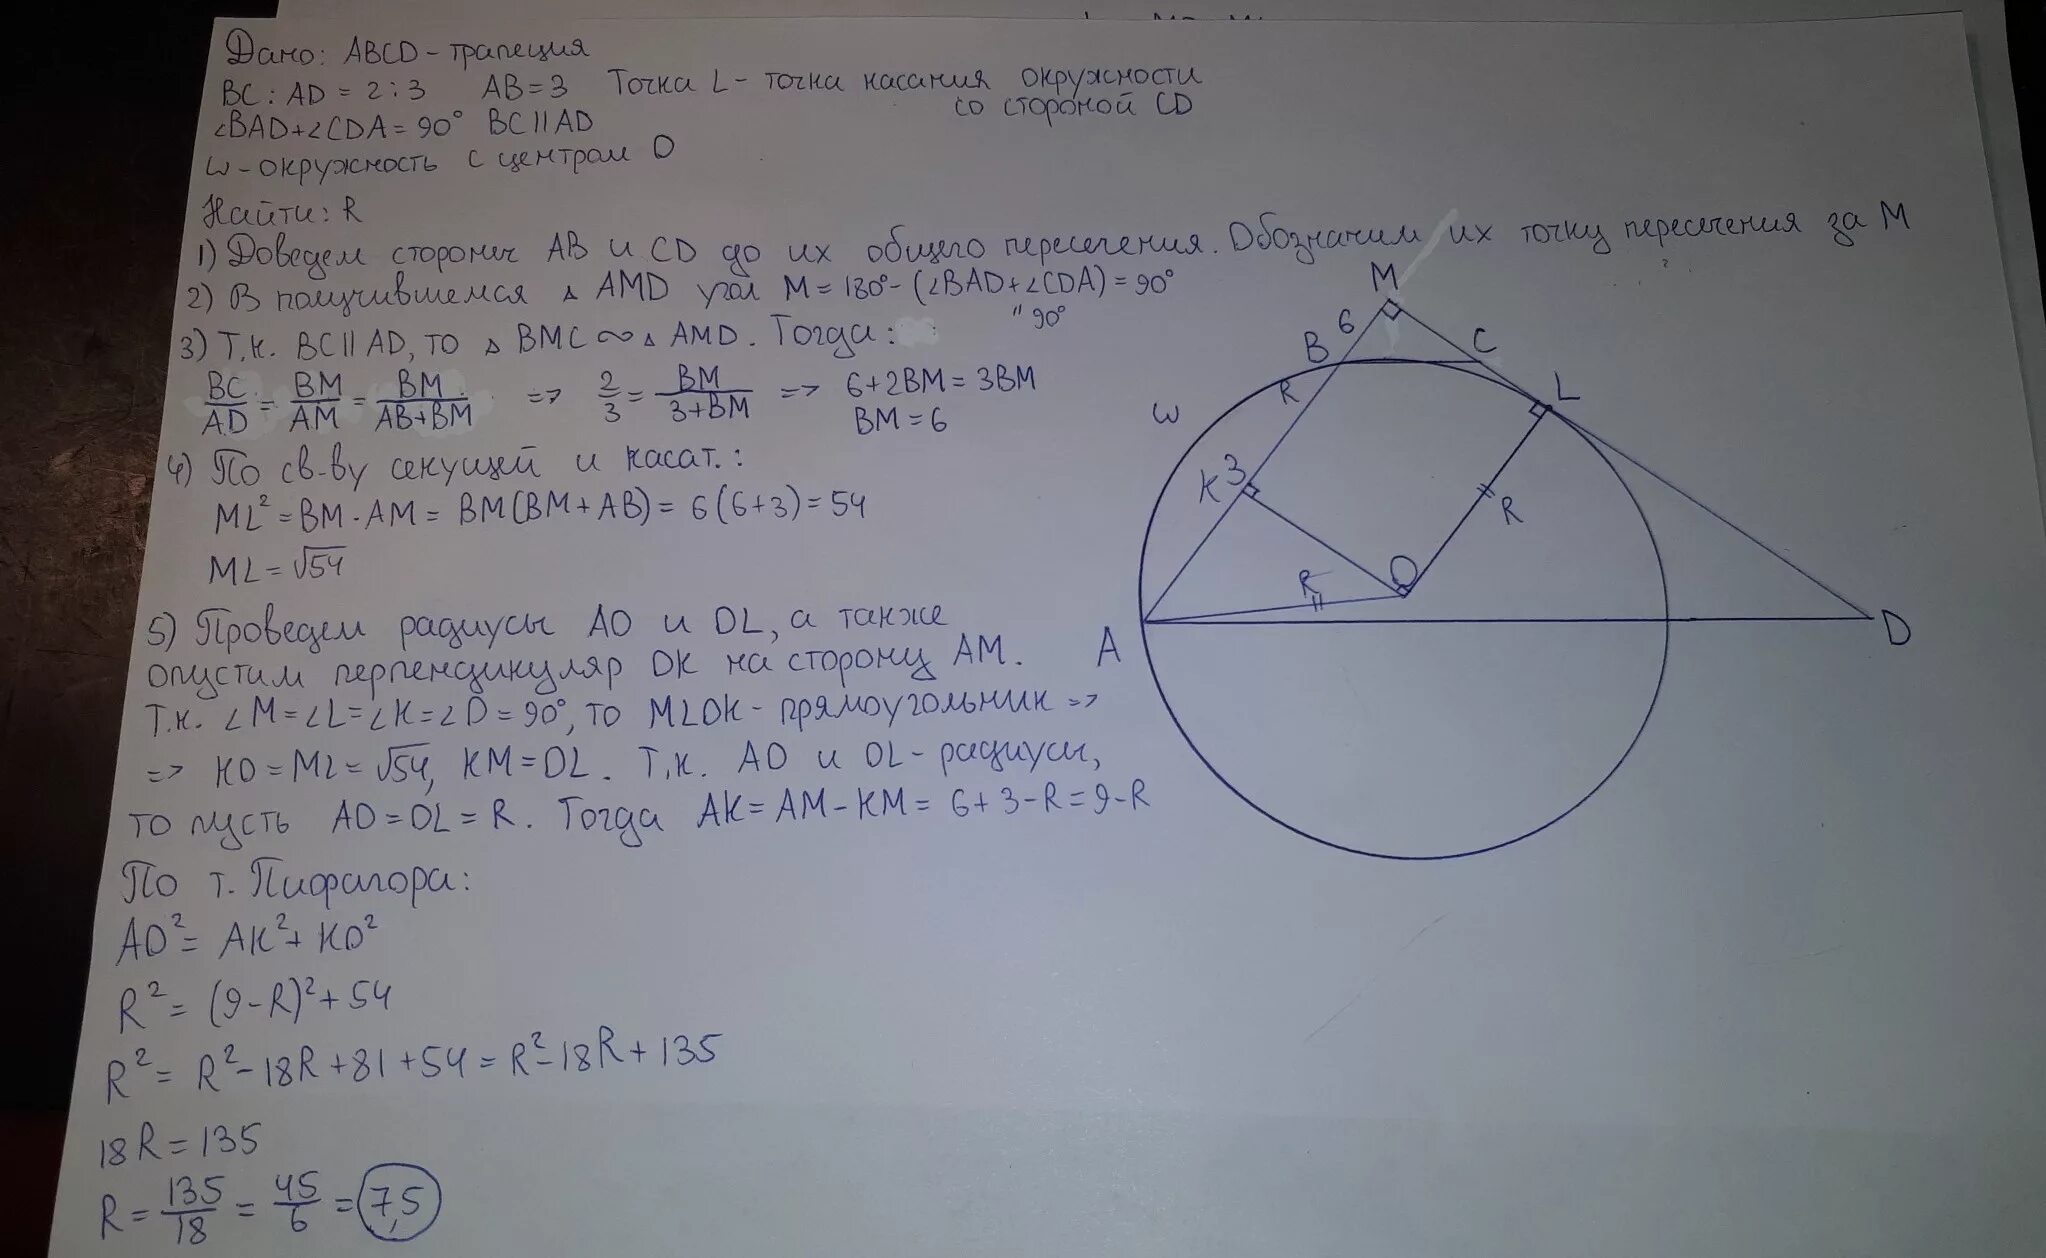 Дано: ABCD - трапеция
BC : AD = 2 : 3 AB = 3 Точка L - точка касания окружности
со стороной CD
∠BAD + ∠CDA = 90° BC || AD
ω - окружность с центром O
Найти: R
1) Доведем стороны AB и CD до их общего пересечения. Обозначим их точку пересечения за M
2) В получившемся △ AMD угол M = 180° - (∠BAD + ∠CDA) = 90°
" 90°
3) Т.к. BC || AD, то △ BMC ∞ △ AMD. Тогда:
BC/AD = BM/AM = BM/(AB+BM) => 2/3 = BM/(3+BM) => 6+2BM = 3BM
BM = 6
4) По св-ву секущей и касат.:
ML² = BM · AM = BM(BM + AB) = 6(6+3) = 54
ML = √54
5) Проведем радиусы AO и OL, а также
опустим перпендикуляр OK на сторону AM.
Т.к. ∠M = ∠L = ∠K = ∠O = 90°, то MLOK - прямоугольник =>
=> KO = ML = √54, KM = OL. Т.к. AO и OL - радиусы,
то пусть AO = OL = R. Тогда AK = AM - KM = 6 + 3 - R = 9 - R
По т. Пифагора:
AO² = AK² + KO²
R² = (9 - R)² + 54
R² = R² - 18R + 81 + 54 = R² - 18R + 135
18R = 135
R = 135/18 = 45/6 = 7,5
M
6
B
C
R
L
ω
K
3
R
O
R
A
D